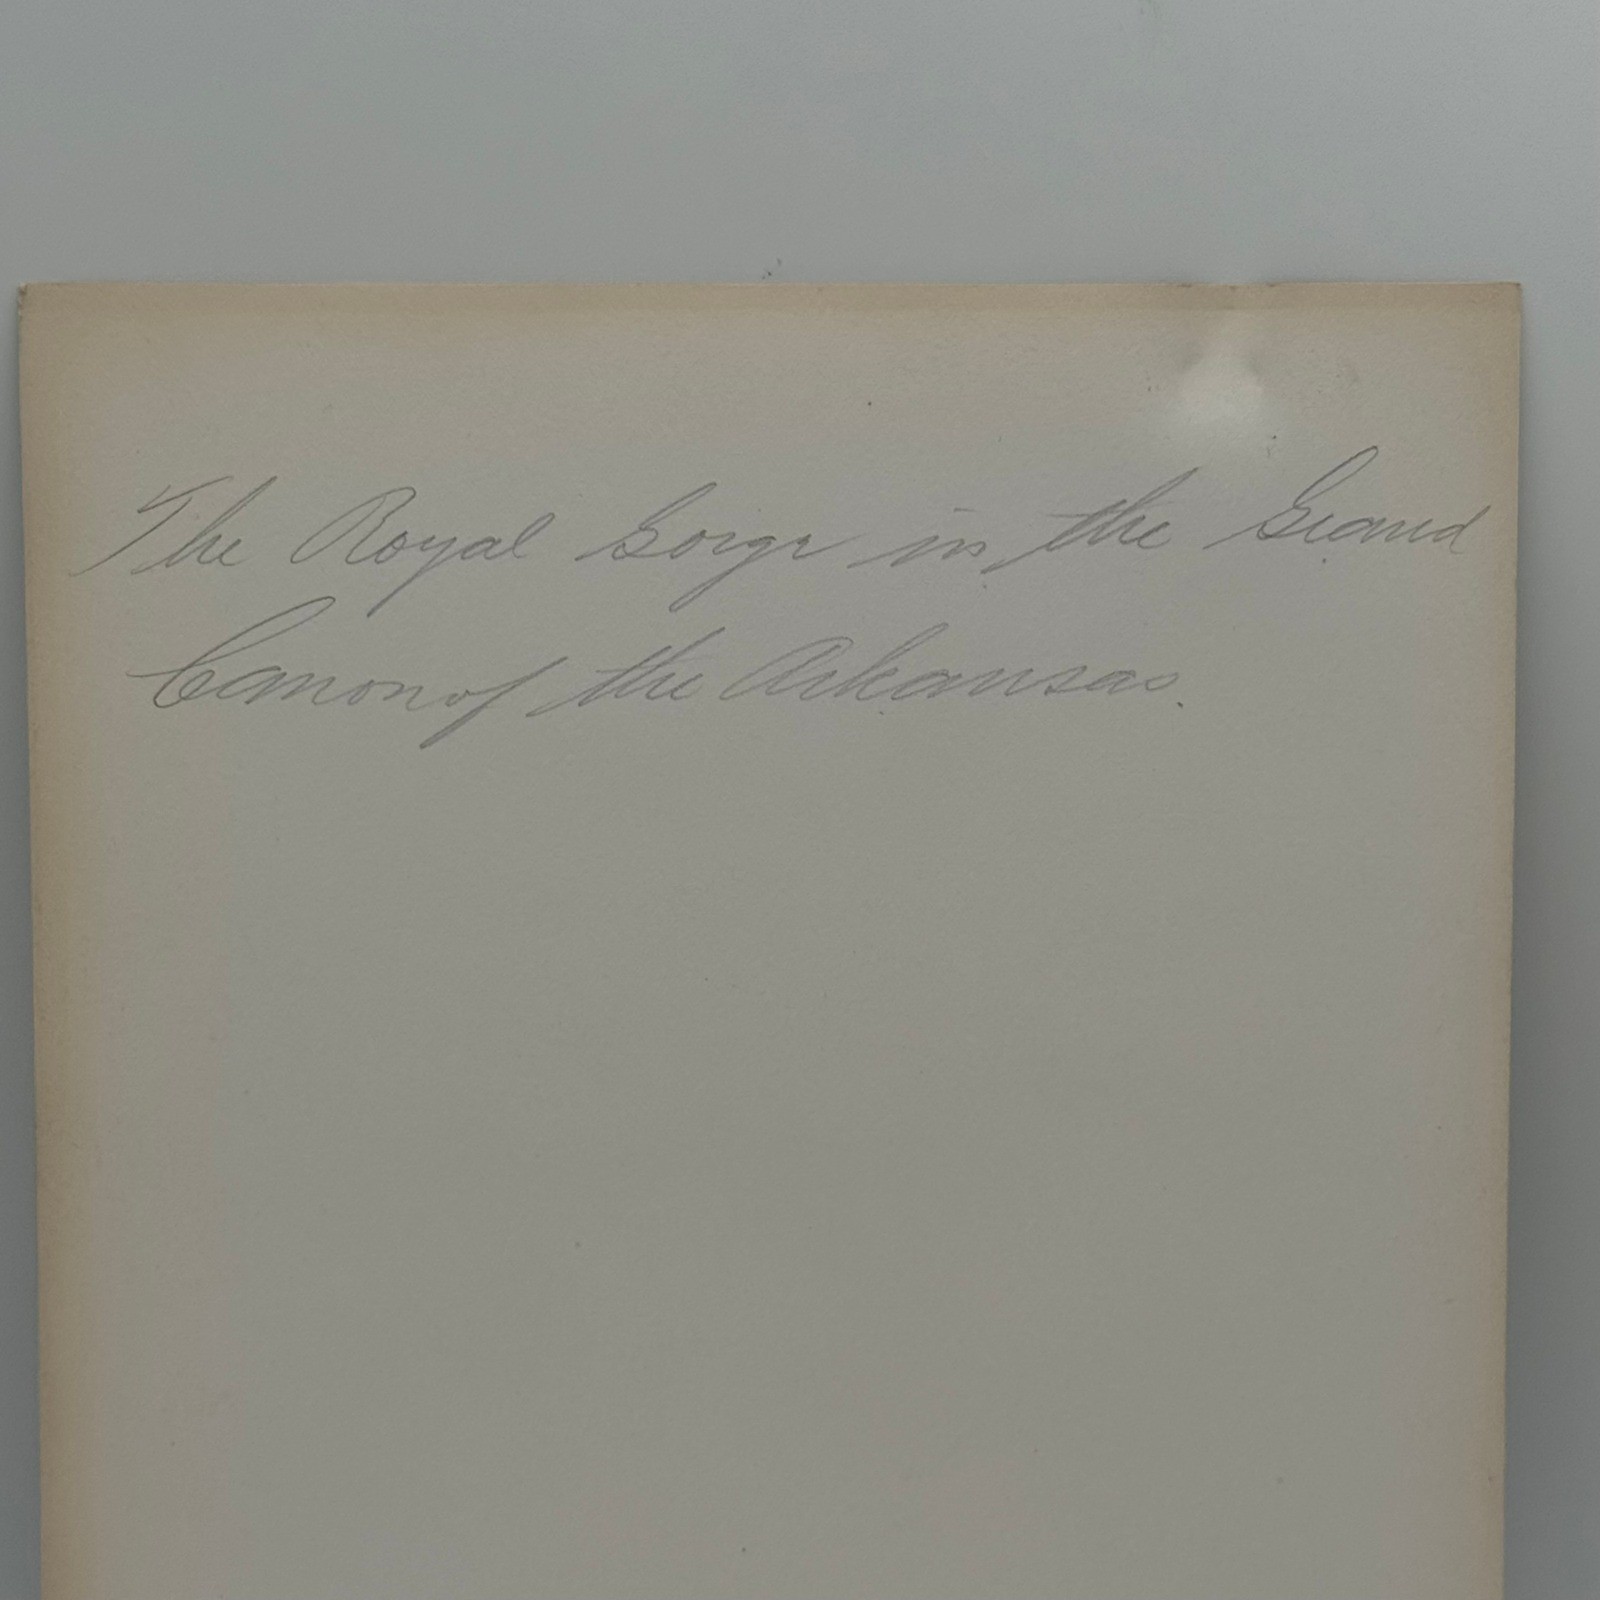 The Royal Gorge in the Grand
Canon of the Arkansas.